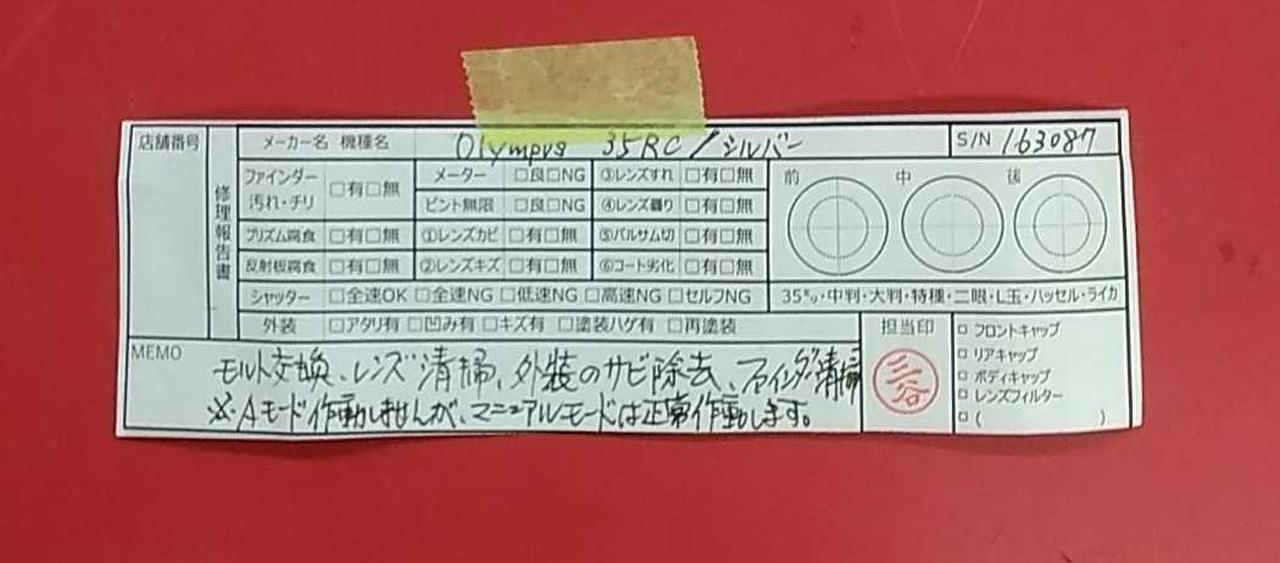 店舗番号
修理報告書
メーカー名 機種名 Olympus 35RC/シルバー S/N 163087
ファインダー汚れ・チリ □有□無 メーター □良□NG ③レンズすれ □有□無 前 中 後
ピント無限 □良□NG ④レンズ曇り □有□無
プリズム腐食 □有□無 ①レンズカビ □有□無 ⑤バルサム切 □有□無
反射板腐食 □有□無 ②レンズキズ □有□無 ⑥コート劣化 □有□無
シャッター □全速OK □全速NG □低速NG □高速NG □セルフNG 35㍉・中判・大判・特種・二眼・L玉・ハッセル・ライカ
外装 □アタリ有 □凹み有 □キズ有 □塗装ハゲ有 □再塗装
MEMO
モルト交換、レンズ清掃、外装のサビ除去、ファインダー清掃
※・Aモード作動しませんが、マニュアルモードは正常作動します。
担当印
三谷
□ フロントキャップ
□ リアキャップ
□ ボディキャップ
□ レンズフィルター
□ ( )